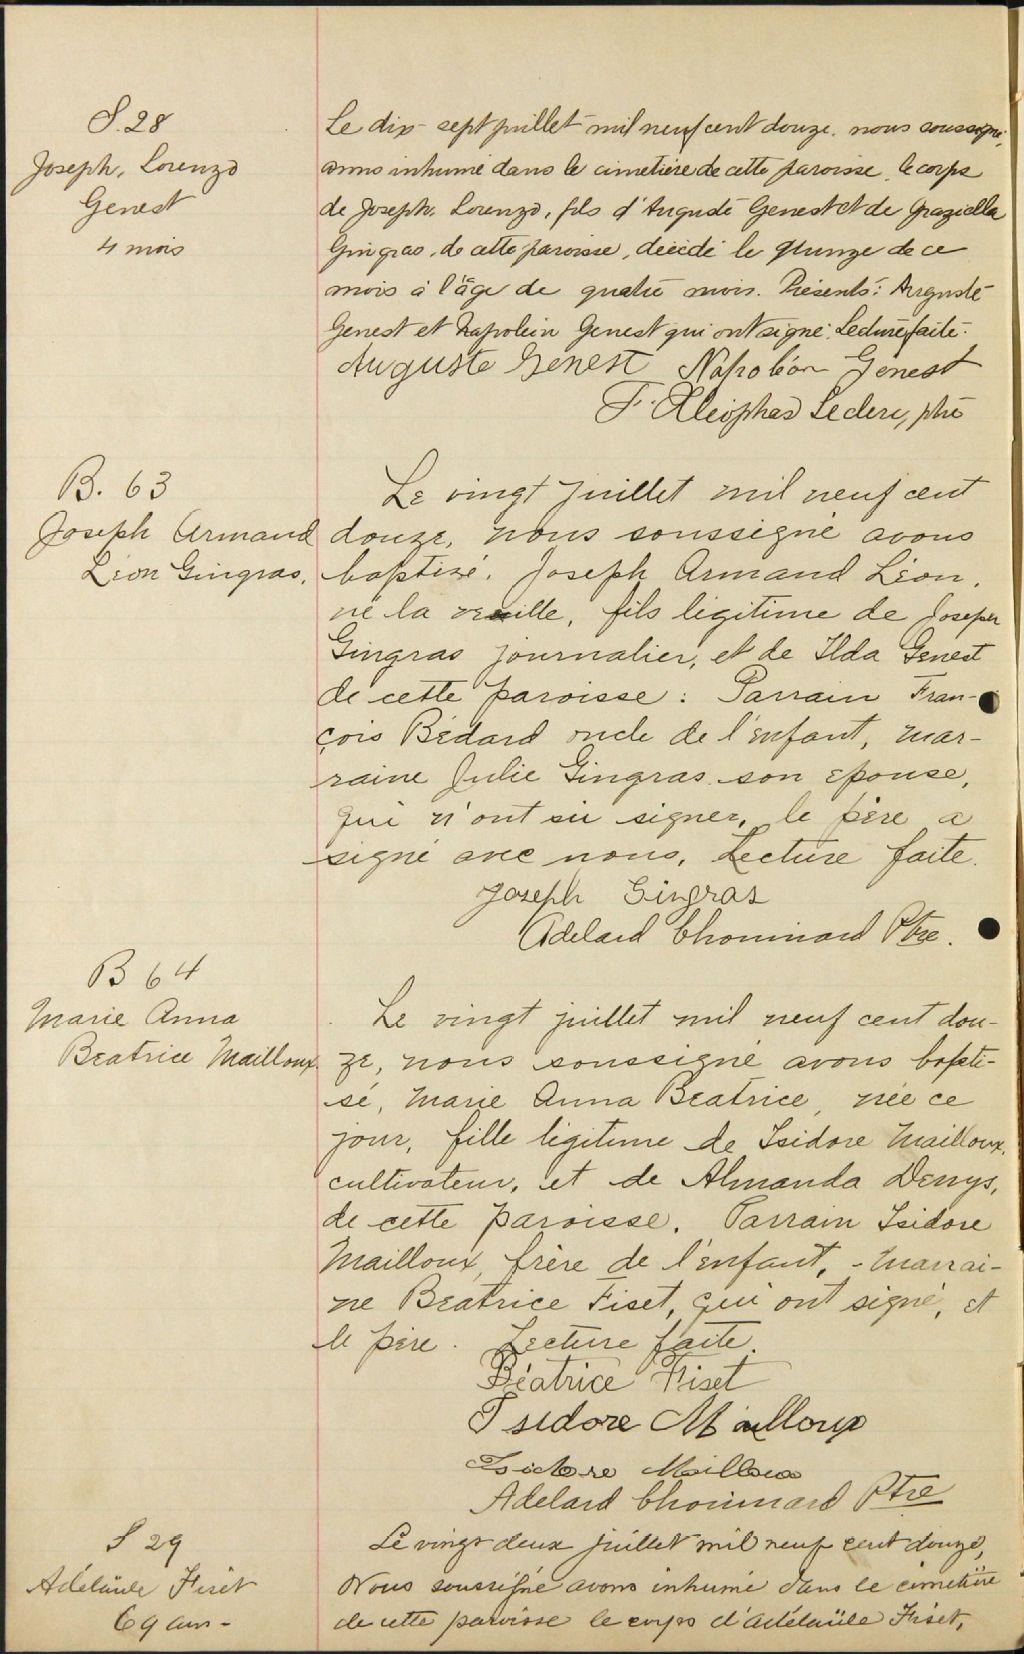 S. 28
Joseph, Lorenzo
Genest
4 mois
Le dix-sept juillet mil neuf cent douze, nous soussigné,
avons inhumé dans le cimetière de cette paroisse, le corps
de Joseph, Lorenzo, fils d'Auguste Genest et de Graziella
Gingras, de cette paroisse, décédé le quinze de ce
mois à l'âge de quatre mois. Présents: Auguste
Genest et Napoléon Genest qui ont signé. Lecture faite.
Auguste Genest Napoléon Genest
F. Cléophas Leclerc, ptre
B. 63
Joseph Armand
Léon Gingras.
Le vingt juillet mil neuf cent
douze, nous soussigné avons
baptisé, Joseph Armand Léon,
né la veille, fils légitime de Joseph
Gingras journalier, et de Ilda Genest
de cette paroisse: Parrain Fran-
çois Bédard oncle de l'enfant, mar-
raine Julie Gingras son épouse,
qui n'ont su signer, le père a
signé avec nous, Lecture faite.
Joseph Gingras
Adelard Chouinard Ptre.
B 64
Marie Anna
Beatrice Mailloux
Le vingt juillet mil neuf cent dou-
ze, nous soussigné avons bapti-
sé, Marie Anna Beatrice, née ce
jour, fille légitime de Isidore Mailloux,
cultivateur, et de Almanda Denys,
de cette paroisse. Parrain Isidore
Mailloux, frère de l'enfant, - marrai-
ne Beatrice Fiset, qui ont signé, et
le père. Lecture faite.
Béatrice Fiset
Isidore Mailloux
Isidore Mailloux
Adelard Chouinard Ptre
S 29
Adélaïde Fiset
69 ans -
Le vingt-deux juillet mil neuf cent douze,
Nous soussigné avons inhumé dans le cimetière
de cette paroisse le corps d'Adélaïde Fiset,